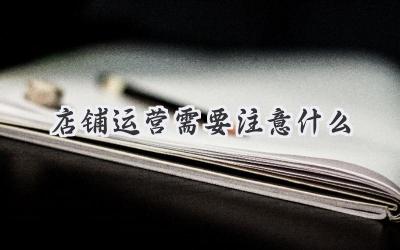 店铺运营需要注意什么